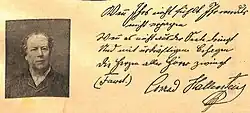 Wenn Ihrs nicht fühlt Ihr werdets
nicht erjagen
Wenn es nicht aus der Seele dringt
Und mit urkräftigem Behagen
Die Herzen aller Hörer zwingt
(Faust) Conrad Hallenstein